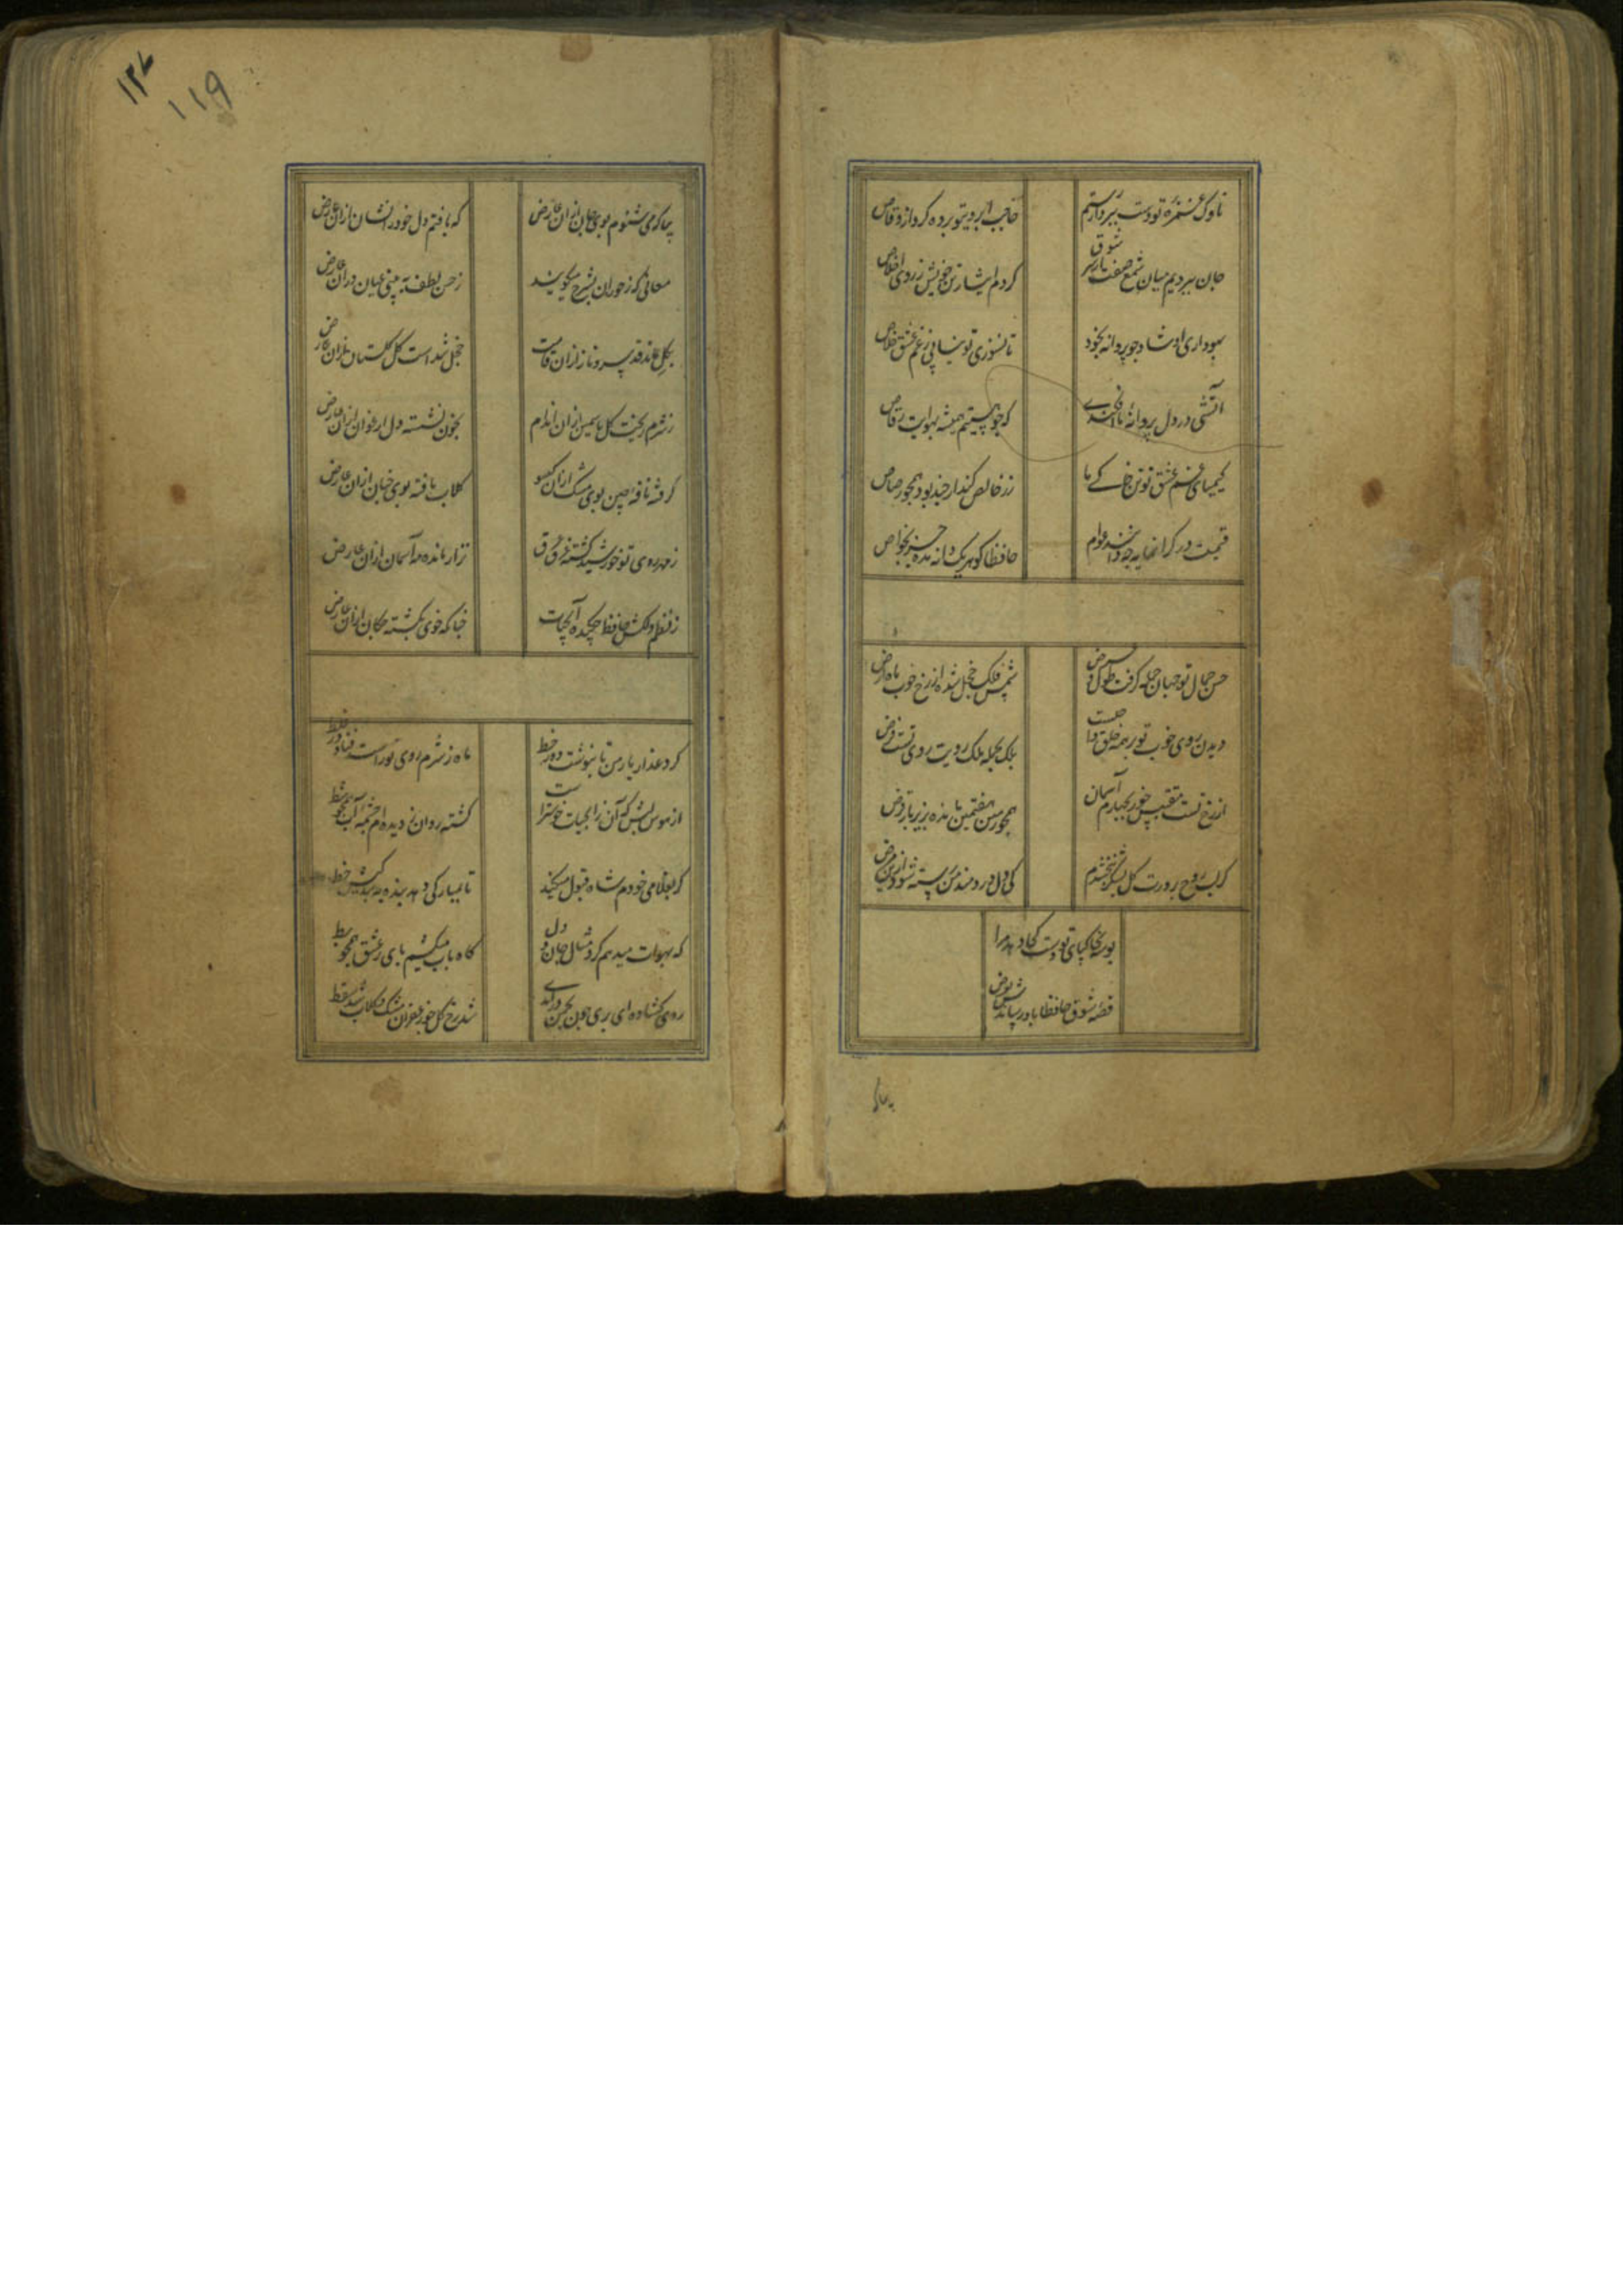 ناوک غمزه تو دست ببرد از رستم
حاجب ابروی تو برده گرو از وقاص
جان سپردیم میان شمع صفت از سر شوق
کردم ایثار تن خویش ز روی اخلاص
بهوداری او شاد چو پروانه بخود
تا نسوزی تو نیابی ز غم عشق خلاص
آتشی در دل پروانه ما افکندی
که چو هستیم همیشه بهوایت رقاص
کیمیای غم عشق تو تن خاکی ما
زر خالص کند ار چند بود همچو رصاص
قیمت در گرانمایه چه دانند عوام
حافظا گوهر یک دانه مده جز بخواص
حسن جمال تو جهان جمله گرفت طول و عرض
شمس فلک خجل شده از رخ خوب ماه ارض
دیدن روی خوب تو بر همه خلق واجبست
بلک بجمله ملک رویت روی تست فرض
از رخ تست مقتبس خور بچهارم آسمان
همچو زمین هفتمین مانده بزیر بار قرض
گر لب روح پرورت گل شکر نبخشدم
کی دل دردمند من رسته شود ازین مرض
بوسه بخاکپای تو دست کجا دهد مرا
قصه شوق حافظا باد رساندش بعرض
بیا که می شنوم بوی جان ازان عارض
که یافتم دل خود را نشان ازان عارض
معانی که ز حوران بشرح میگویند
ز حسن لطف به بینی عیان دران عارض
بگل بماند قد سرو ناز ازان قامت
خجل شد است گل گلستان ازان عارض
ز شرم ریخت گل یاسمین ازان اندام
بخون نشسته دل ارغوان ازان عارض
گرفته نافه چین بوی مشک ازان گیسو
گلاب یافته بوی جنان ازان عارض
ز مهر روی تو خورشید گشته غرق عرق
نزار مانده مه آسمان ازان عارض
ز نظم دلکش حافظ چکیده آب حیات
چنانکه خوی بگشته چکان ازان عارض
گرد عذار یار من تا بنوشت دور خط
ماه ز شرم روی تو راست فتاد در غلط
از هوس لبش که آن ز آب حیات خوشتر است
گشته روان ز دیده ام چشمه آب همچو شط
گر بغلامی خودم شاه قبول میکند
تا بمبارکی دهد بنده به بندگیش خط
که بهوات میدهم گرد مثال جان و دل
گاه بآب میکشیم پای ز عشق همچو بط